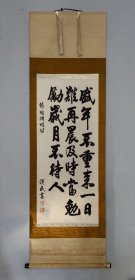 盛年不重来一日
难再晨及时当勉
励岁月不待人